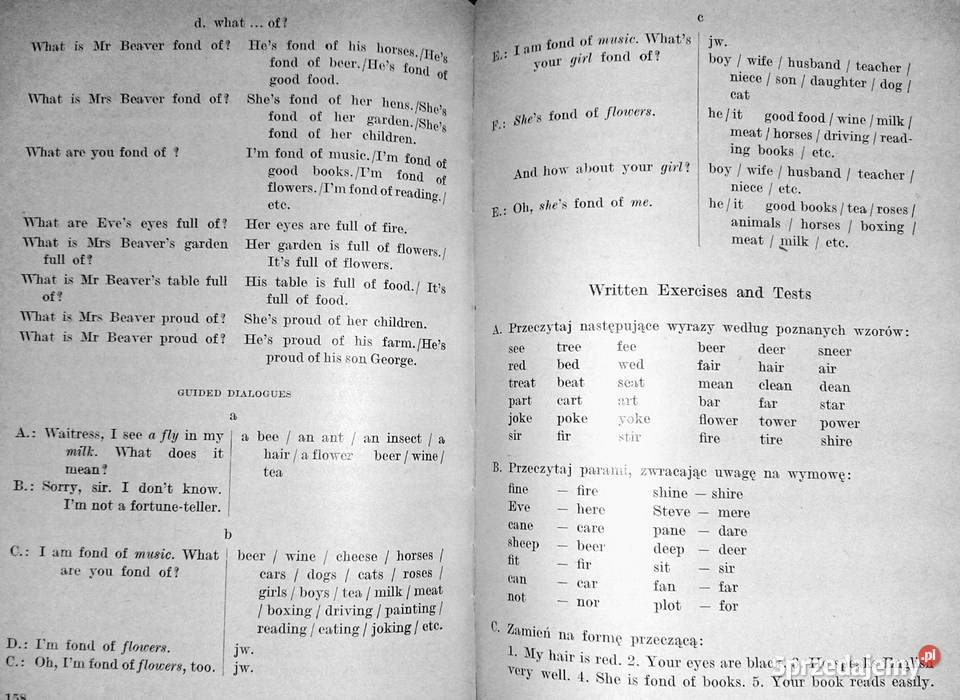 d. what ... of?
What is Mr Beaver fond of? He's fond of his horses./He's
fond of beer./He's fond of
good food.
What is Mrs Beaver fond of? She's fond of her hens./She's
fond of her garden./She's
fond of her children.
What are you fond of ? I'm fond of music./I'm fond of
good books./I'm fond of
flowers./I'm fond of reading./
etc.
What are Eve's eyes full of? Her eyes are full of fire.
What is Mrs Beaver's garden Her garden is full of flowers./
full of? It's full of flowers.
What is Mr Beaver's table full His table is full of food./ It's
of? full of food.
What is Mrs Beaver proud of? She's proud of her children.
What is Mr Beaver proud of? He's proud of his farm./He's
proud of his son George.
GUIDED DIALOGUES
a
A.: Waitress, I see a fly in my a bee / an ant / an insect / a
milk. What does it hair / a flower beer / wine /
mean? tea
B.: Sorry, sir. I don't know.
I'm not a fortune-teller.
b
C.: I am fond of music. What beer / wine / cheese / horses /
are you fond of? cars / dogs / cats / roses /
girls / boys / tea / milk / meat
/ boxing / driving / painting /
reading / eating / joking / etc.
D.: I'm fond of flowers. jw.
C.: Oh, I'm fond of flowers, too. jw.
158
c
E.: I am fond of music. What's jw.
your girl fond of? boy / wife / husband / teacher /
niece / son / daughter / dog /
cat
F.: She's fond of flowers. he / it good food / wine / milk /
meat / horses / driving / read-
ing books / etc.
And how about your girl? boy / wife / husband / teacher /
niece / etc.
E.: Oh, she's fond of me. he / it good books / tea / roses /
animals / horses / boxing /
meat / milk / etc.
Written Exercises and Tests
A. Przeczytaj następujące wyrazy według poznanych wzorów:
see tree fee beer deer sneer
red bed wed fair hair air
treat beat seat mean clean dean
part cart art bar far star
joke poke yoke flower tower power
sir fir stir fire tire shire
B. Przeczytaj parami, zwracając uwagę na wymowę:
fine – fire shine – shire
Eve – here Steve – mere
cane – care pane – dare
sheep – beer deep – deer
fit – fir sit – sir
can – car fan – far
not – nor plot – for
C. Zamień na formę przeczącą:
1. My hair is red. 2. Your eyes are English
very well. 4. She is fond of books. 5. Your book reads easily.
Sprzedajemy.pl